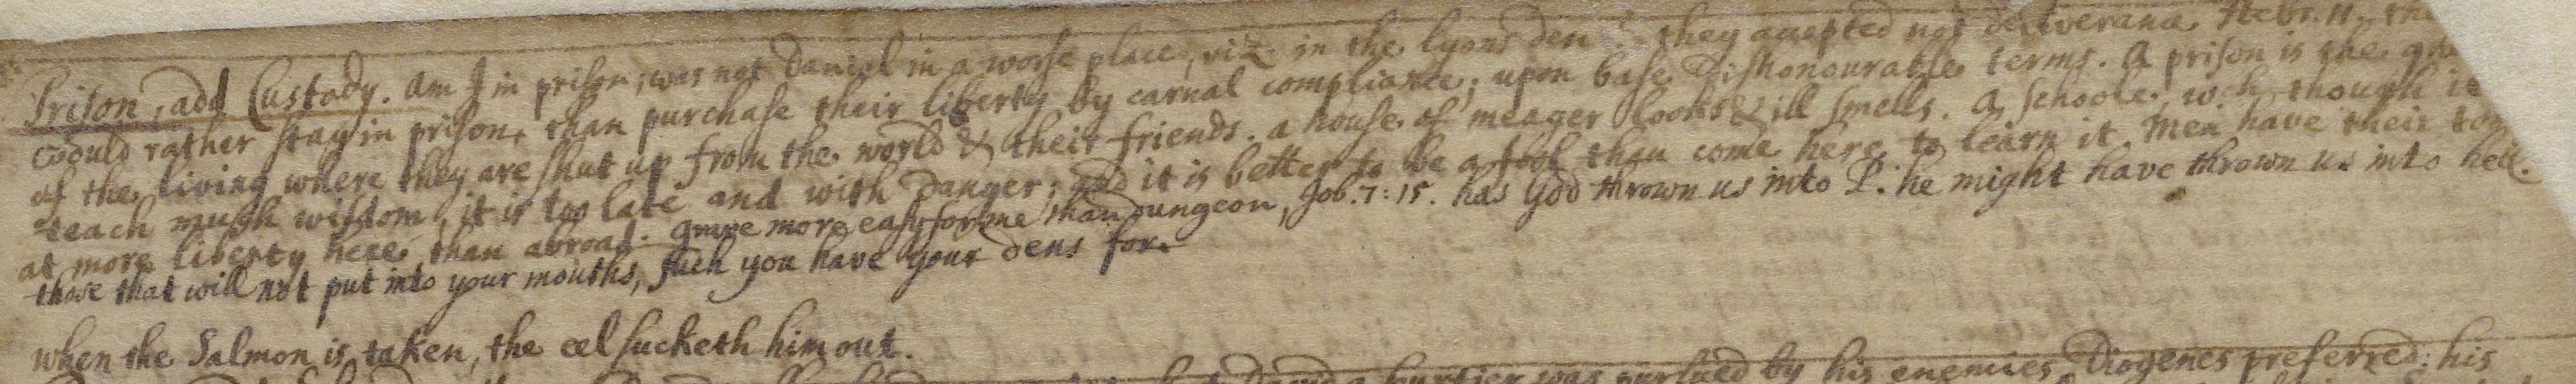 Prison, add Custody. Am I in prison; was not Daniel in a worse place, viz. in the lyons den? they accepted not deliverance Hebr. 11. the
could rather stay in prison, than purchase their liberty by carnal compliance; upon base Dishonourable terms. A prison is the
of the living where they are shut up from the world & their friends. a house of meager looks & ill smells. A schoole, wch though it
teach much wisdom, it is too late and with Danger; and it is better to be a fool than come here to learn it. Men have their
at more liberty here, than abroad. grave more easy for me than dungeon, Job. 7: 15. has God thrown us into P. he might have thrown us into hell.
those that will not put into your mouths, such you have your dens for.
when the Salmon is taken, the eel sucketh him out.
was pursued by his enemies Diogenes preferred: his